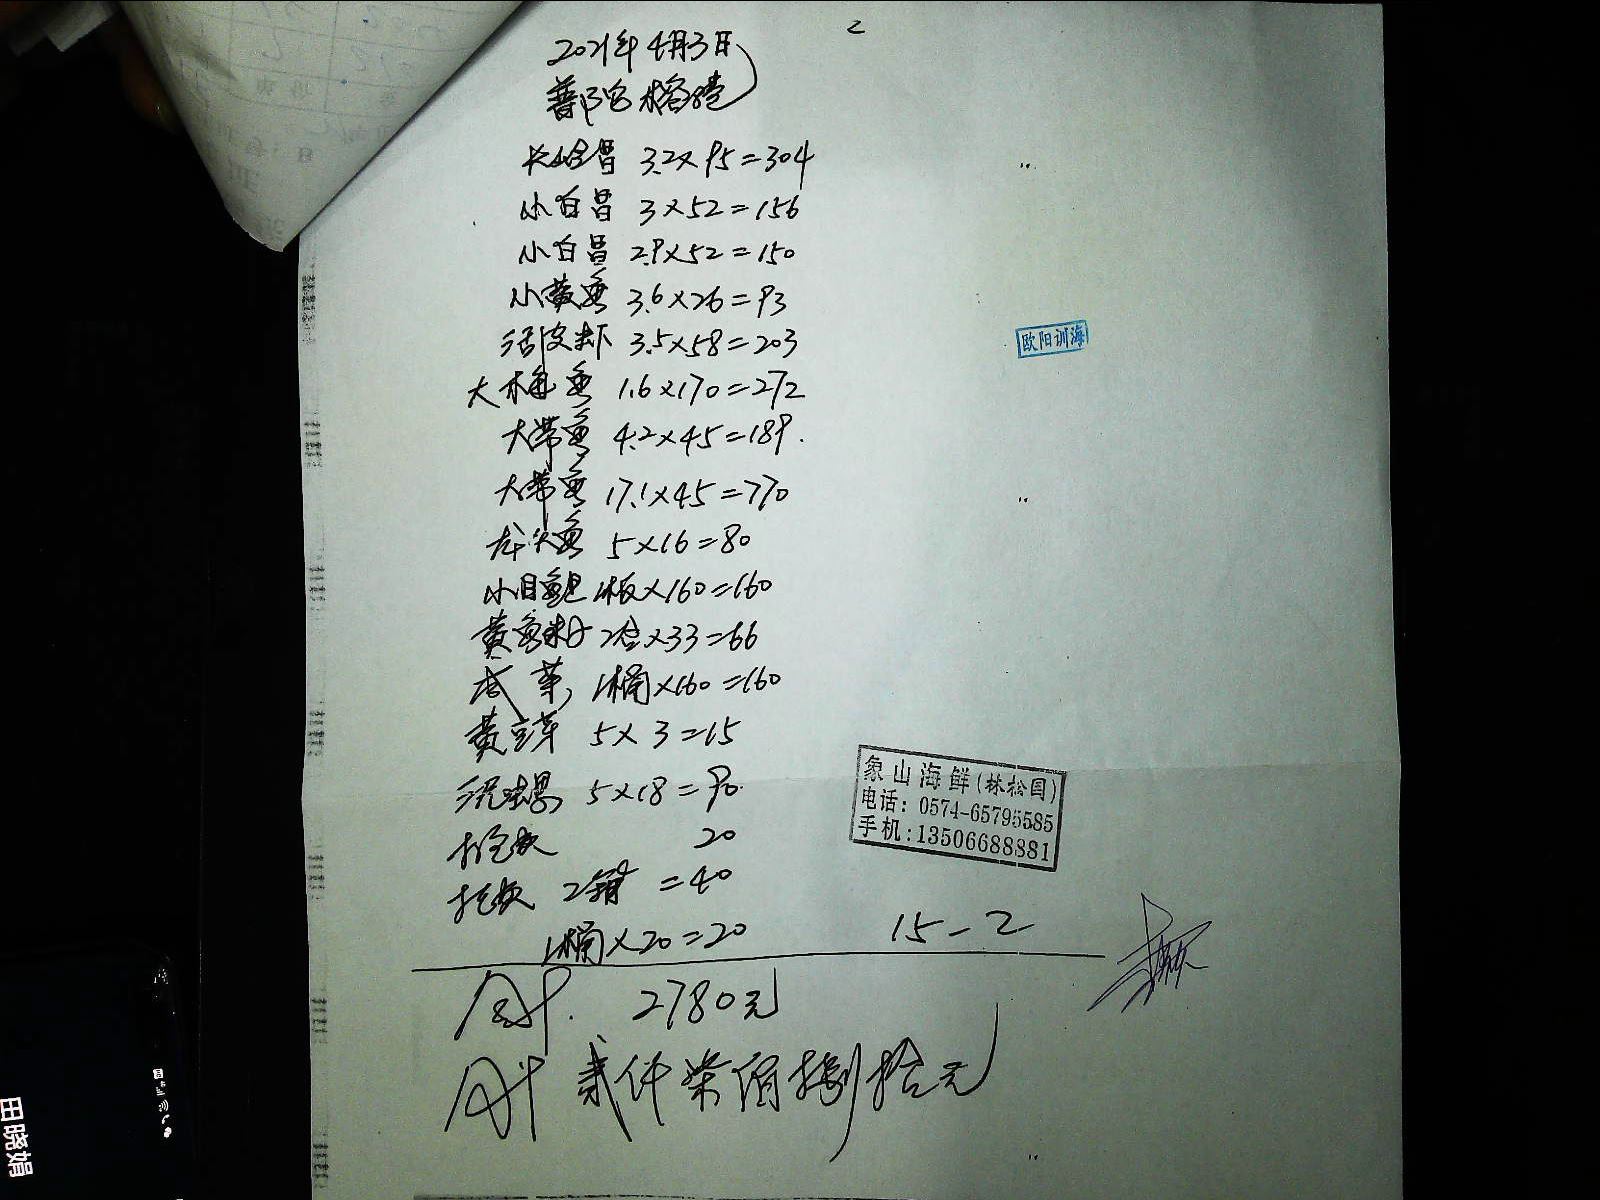 2
2021年4月3日
普陀
长 昌 3.2×95=304
小白昌 3×52=156
小白昌 2.9×52=150
小黄鱼 3.6×26=93
活皮虾 3.5×58=203
大梅鱼 1.6×170=272
大带鱼 4.2×45=189.
大带鱼 17.1×45=770
龙头鱼 5×16=80
小目鱼 1板×160=160
黄鱼 2盒×33=66
1桶×160=160
黄豆芽 5×3=15
泥螺 5×18=90
20
2箱 =40
1桶×20=20
15-2
合计. 2780元
合计 贰仟柒佰捌拾元
欧阳训海
象山海鲜(林松国)
电话: 0574-65795585
手机:13506688881
田晓娟